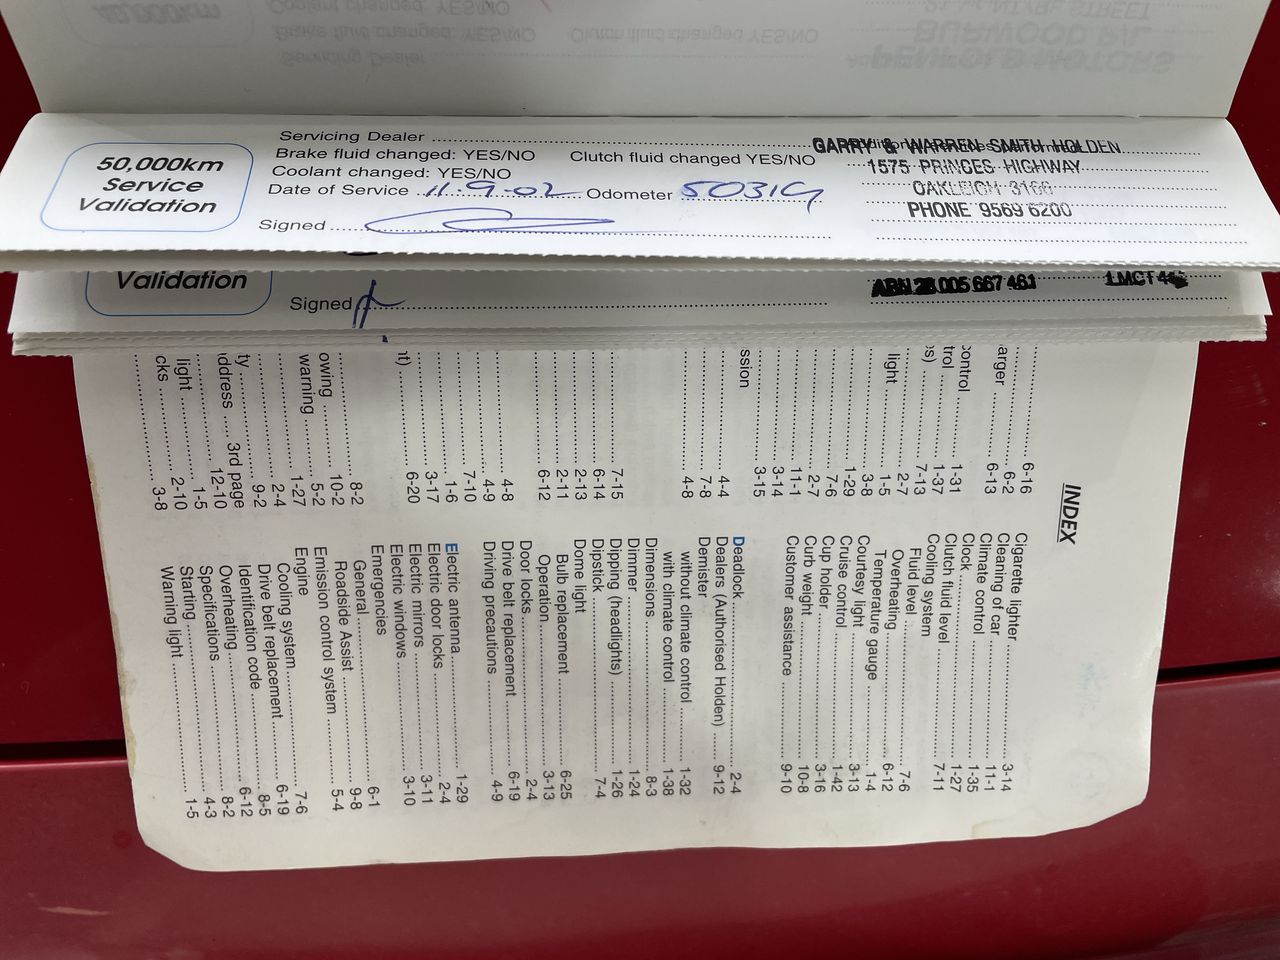 50,000km
Service
Validation
Servicing Dealer
Brake fluid changed: YES/NO Clutch fluid changed YES/NO
Coolant changed: YES/NO
Date of Service 11-9-02 Odometer 50319
Signed
GARRY & WARREN SMITH HOLDEN
1575 PRINCES HIGHWAY
OAKLEIGH 3166
PHONE 9569 6200
Validation
Signed
ABN 28 005 667 461 LMCT
INDEX
6-16
arger 6-2
6-13
control 1-31
trol 1-37
7-13
light 2-7
1-5
3-8
1-29
7-6
2-7
11-1
3-14
ssion 3-15
4-4
7-8
4-8
7-15
6-14
2-13
2-11
6-12
4-8
4-9
7-10
1-6
3-17
6-20
8-2
owing 10-2
warning 5-2
1-27
2-4
ty 9-2
ddress 3rd page
12-10
light 1-5
2-10
cks 3-8
Cigarette lighter 3-14
Cleaning of car 11-1
Climate control 1-35
Clock 1-27
Clutch fluid level 7-11
Cooling system
Fluid level 7-6
Overheating 6-12
Temperature gauge 1-4
Courtesy light 3-13
Cruise control 1-42
Cup holder 3-16
Curb weight 10-8
Customer assistance 9-10
Deadlock 2-4
Dealers (Authorised Holden) 9-12
Demister
without climate control 1-32
with climate control 1-38
Dimensions 8-3
Dimmer 1-24
Dipping (headlights) 1-26
Dipstick 7-4
Dome light
Bulb replacement 6-25
Operation 3-13
Door locks 2-4
Drive belt replacement 6-19
Driving precautions 4-9
Electric antenna 1-29
Electric door locks 2-4
Electric mirrors 3-11
Electric windows 3-10
Emergencies
General 6-1
Roadside Assist 9-8
Emission control system 5-4
Engine
Cooling system 7-6
Drive belt replacement 6-19
Identification code 8-5
Overheating 6-12
Specifications 8-2
Starting 4-3
Warning light 1-5